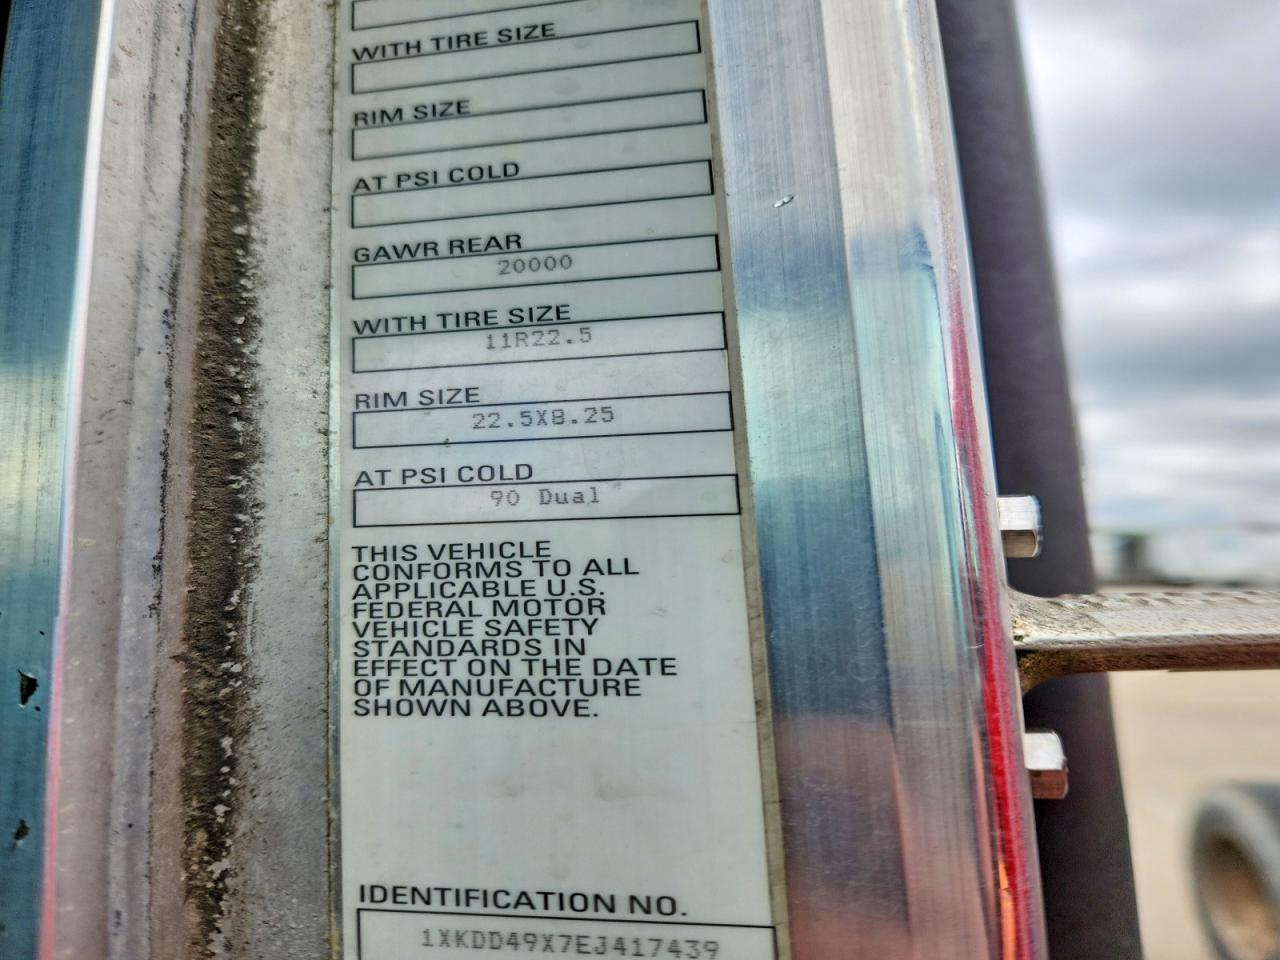 WITH TIRE SIZE
RIM SIZE
AT PSI COLD
GAWR REAR
20000
WITH TIRE SIZE
11R22.5
RIM SIZE
22.5X8.25
AT PSI COLD
90 Dual
THIS VEHICLE
CONFORMS TO ALL
APPLICABLE U.S.
FEDERAL MOTOR
VEHICLE SAFETY
STANDARDS IN
EFFECT ON THE DATE
OF MANUFACTURE
SHOWN ABOVE.
IDENTIFICATION NO.
1XKDD49X7EJ417439